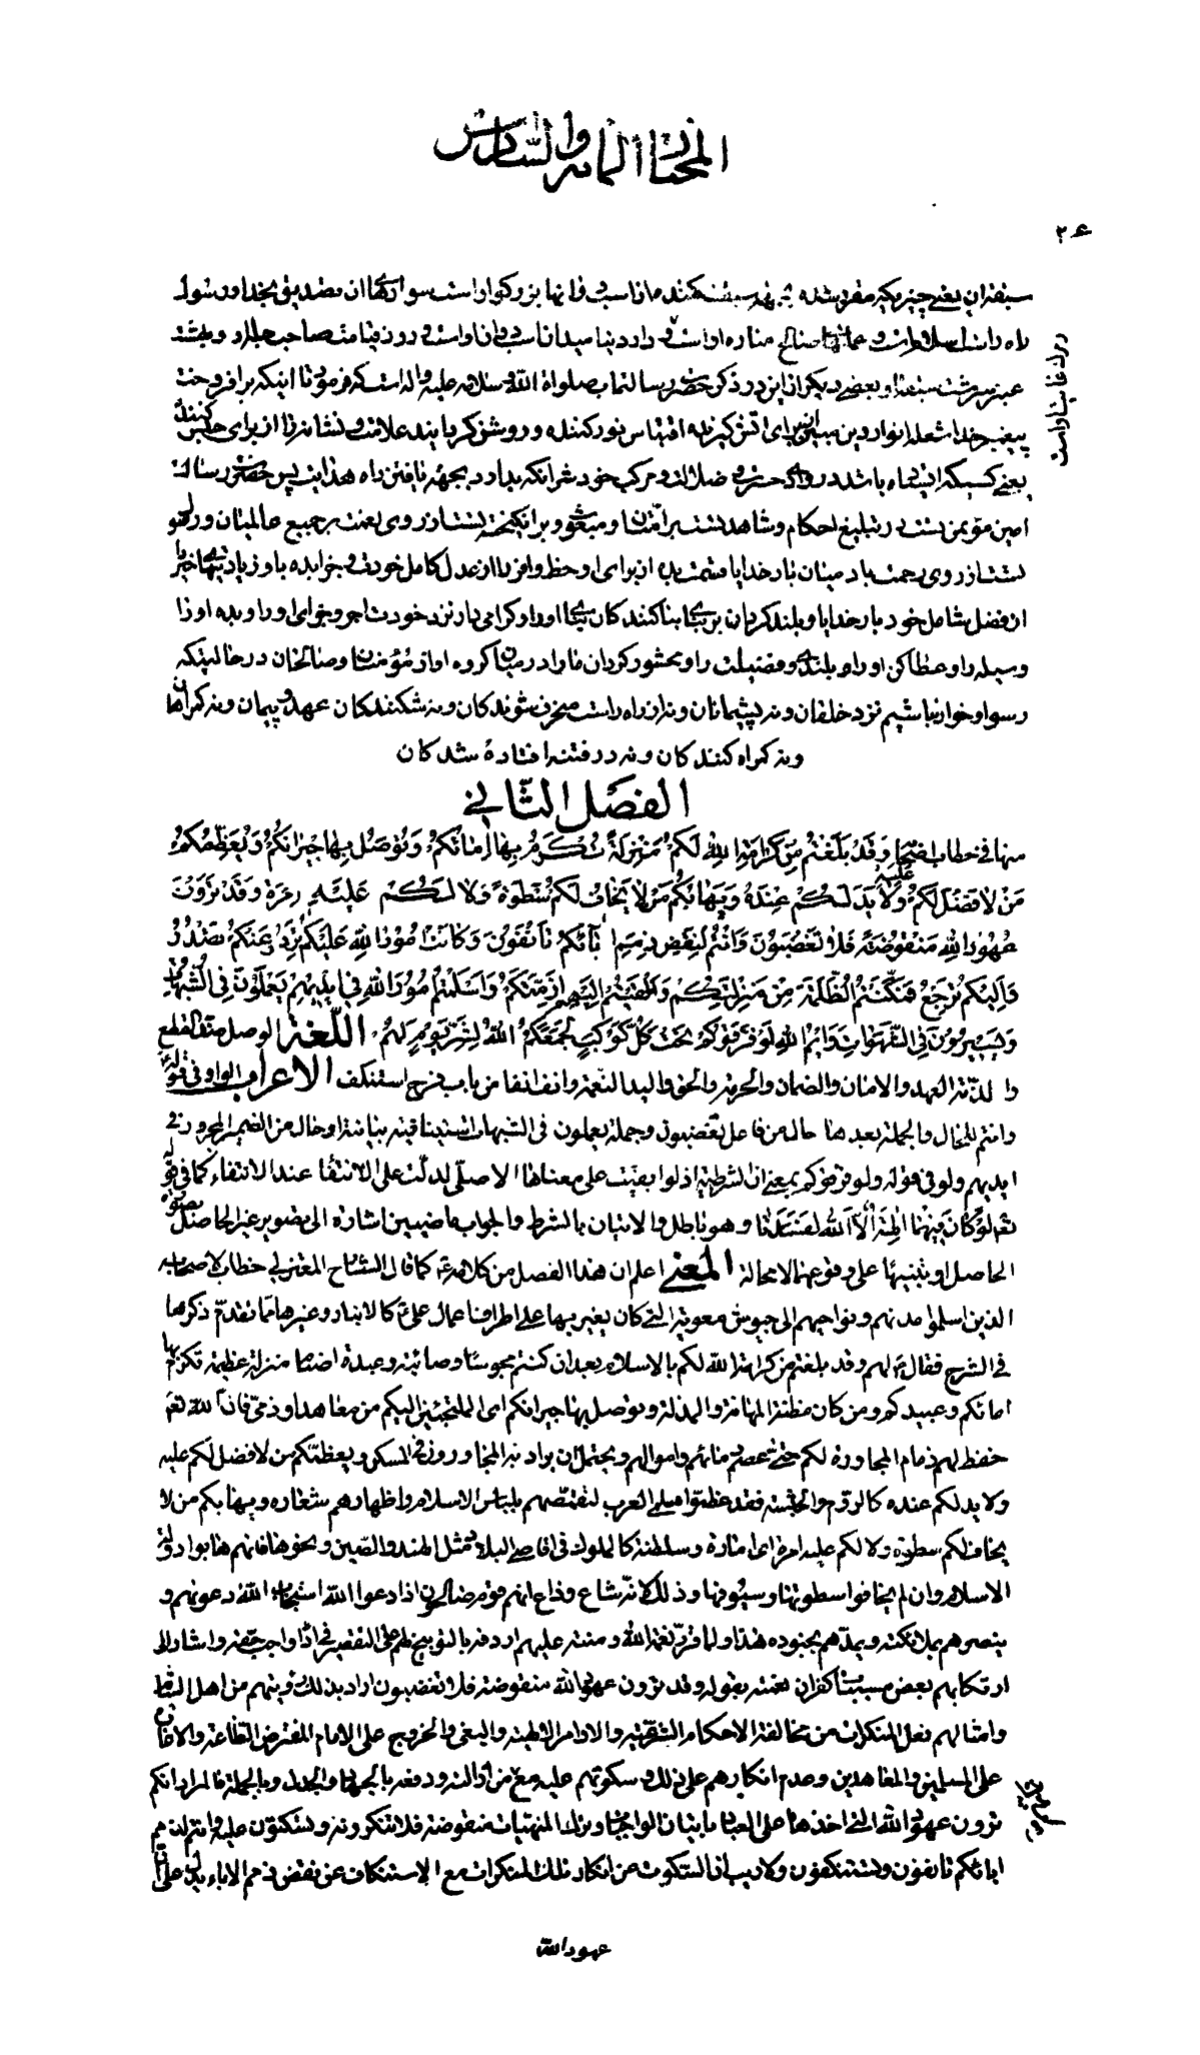 المختار المائة والسادس
سبقتران يعنى چيزيكه مقرر شده
راه راست اسلام است و مناره او است و در دنيا ميدان اسب او است و روز قيامت صاحب
و بعضى ديكر از اين در ذكر حضرت رسالتماب صلواة الله وسلامه عليه واله است كه فرموده تا اينكه بر افروخت
پيغمبر خدا شعله انوار دين مبين را براى اقتباس نور كننده و روشن كردانيد علامت و نشانها را از براى حبس كننده
يعنى كسيكه ايستاده باشد در وادى حيرت و ضلالت و مركب خود را نكه بدارد بجهة نيافتن راه هدايت پس حضرت رسالت
امين مؤتمن تست در تبليغ احكام و شاهد تست بر امتان و مبعوث و برانكيخته تست از روى نعمت بر جميع عالميان و رسول
تست از روى رحمت بادميان بار خدايا قسمت بده از براى او حظ وافر را از عدل كامل خودت و جزا بده باو زيادتيهاى خير را
از فضل شامل خود بار خدايا و بلند كردان بر بناى بنا كنندكان بناى او را و كرامى دار نزد خودت اجر و جزاى او را و بده او را
وسيله را و عطا كن او را و بلندى و فضيلت را و محشور كردان ما را در ميان كروه او از مؤمنان و صالحان در حالتيكه
رسوا و خوار نباشيم نزد خلقان و نه پشيمانان و نه از راه راست منحرف شوندكان و نه شكنندكان عهد و پيمان و نه كمراهان
و نه كمراه كنندكان و نه در فتنه افتاده شدكان
الفصل الثانى
منها فى خطاب اصحابه وَقَدْ بَلَغْتُمْ مِنْ كَرامَةِ اللهِ لَكُمْ مَنْزِلَةً تُكْرَمُ بِها اِمائُكُمْ وَتُوصَلُ بِها جيرانُكُمْ وَيُعَظِّمُكُمْ
مَنْ لا فَضْلَ لَكُمْ عَلَيْهِ وَلا يَدَ لَكُمْ عِنْدَهُ وَيَهابُكُمْ مَنْ لا يَخافُ لَكُمْ سَطْوَةً وَلا لَكُمْ عَلَيْهِ اِمْرَةٌ وَقَدْ تَرَوْنَ
عُهُودَ اللهِ مَنْقُوضَةً فَلا تَغْضَبُونَ وَاَنْتُمْ لِنَقْضِ ذِمَمِ ابائِكُمْ تَأْنَفُونَ وَكانَتْ اُمُورُ اللهِ عَلَيْكُمْ تَرِدُ وَعَنْكُمْ تَصْدُرُ
وَاِلَيْكُمْ تَرْجِعُ فَمَكَّنْتُمُ الظَّلَمَةَ مِنْ مَنْزِلَتِكُمْ وَاَلْقَيْتُمْ اِلَيْهِمْ اَزِمَّتَكُمْ وَاَسْلَمْتُمْ اُمُورَ اللهِ فى اَيْديهِمْ يَعْمَلُونَ فِى الشُّبُهاتِ
وَيَسيرُونَ فِى الشَّهَواتِ وَايْمُ اللهِ لَوْ فَرَّقُوكُمْ تَحْتَ كُلِّ كَوْكَبٍ لَجَمَعَكُمُ اللهُ لِشَرِّ يَوْمٍ لَهُمْ. اللّغة الوصل ضد القطع
و الذمّة العهد والامان والضمان والحرمة والحق وانف من باب فرح استنكف الاعراب الواو فى قوله
وانتم للحال والجملة بعدها حال من فاعل تغضبون وجملة يعملون فى الشبهات استينافية بيانية او حال من الضمير المجرور فى
ايديهم ولو فى قوله ولو فرقوكم بمعنى ان الشرطية اذ لو بقيت على معناها الاصلّى لدلّت على الانتفاء عند الانتفاء كما فى قوله
لَوْ كانَ فيهِما الِهَةٌ اِلاَّ اللهُ لَفَسَدَتا وهو باطل والاتيان بالشرط والجواب ماضيين اشارة الى تصوير غير الحاصل بصورة
الحاصل او تنبيها على وقوعهما لا محالة المعنى اعلم ان هذا الفصل من كلامه كما قال الشارح المعتزلى خطاب لاصحابه
الذين اسلموا مدنهم ونواحيهم الى جيوش معوية التى كان يغير بها على اطراف اعمال علىّ كالانبار وغيرها مما تقدّم ذكرها
فى الشرح فقال لهم وقد بلغتم من كرامة الله لكم بالاسلام بعد ان كنتم مجوسا وعبدة اصنام منزلة عظيمة تكرم بها
امائكم وعبيدكم ومن كان مظنة المهانة والمذلة وتوصل بها جيرانكم اى الملتجئين اليكم من معاهد او ذمىّ فان الله تعالى
حفظ لهم ذمام المجاورة لكم حتى عصم دمائهم واموالهم ويحتمل ان يراد به المجاورون فى المسكن ويعظمكم من لا فضل لكم عليه
ولا يد لكم عنده كالروم والحبشة فقد عظموا مسلمى العرب لتقمصهم بلباس الاسلام واظهارهم شعاره ويهابكم من لا
يخاف لكم سطوة ولا لكم عليه امرة اى امارة وسلطنة كالملوك فى اقاصى البلاد مثل الهند والصّين ونحوها فانهم هابوا دولة
الاسلام وان لم يخافوا سطوتها وسيوفها وذلك لانه شاع وذاع انهم قوم صالحون اذا دعوا الله استجاب الله دعوتهم و
ينصرهم بملائكته ويمدّهم بجنوده هذا ولما قرّر نعمة الله ومنته عليهم اردفه بالتوبيخ لهم على التقصير فى اداء واجب حقه واشار الى
ارتكابهم بعض مسببات كفران نعمته بقوله وقد ترون عهود الله منقوضة فلا تغضبون اراد بذلك من اهل الشام
وامثالهم بفعل المنكرات من مخالفة الاحكام الشرعية والاوامر الالهية والبغى والخروج على الامام المفترض الطاعة
على المسلمين والمعاهدين وعدم انكارهم على ذلك وسكوتهم عليه مع من بالجهاد وبالجملة فالمراد انكم
ترون عهود الله التى اخذها على العباد باتيان الواجبات وترك المنهيات منقوضة فلا تنكرونه وتسكتون عليه وانتم لذمم
ابائكم تانفون وتستنكفون ولا ريب ان السكوت عن انكار تلك المنكرات مع الاستنكاف عن نقض ذمم الاباء يدل على ان
عهود الله